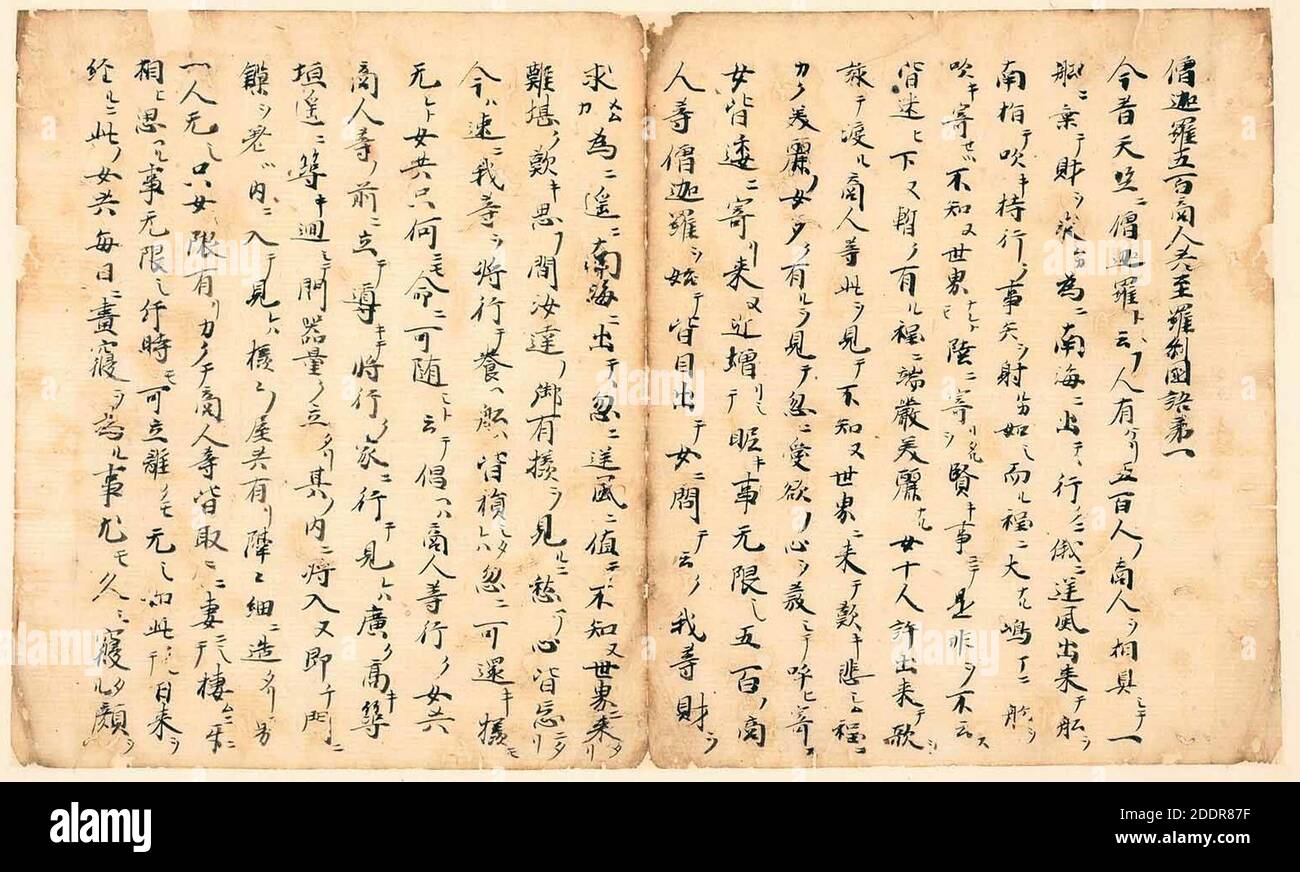 僧迦羅五百商人共至羅刹国語第一
今昔天竺ニ僧迦羅ト云フ人有ケリ五百人ノ商人ヲ相具シテ一
船ニ乗テ財ヲ求ムカ為ニ南海ニ出テ行クニ俄ニ逆風出来テ船ヲ
南指テ吹キ持行ク事矢ヲ射ルカ如シ而ル程ニ大ナル嶋ニ船ヲ
吹キ寄セツ不知ヌ世界ナレトモ陸ニ寄タルヲ賢キ事ニシテ是非ヲ不云ス
皆迷ヒ下ヌ暫ク有ル程ニ端厳美麗ナル女十人許出来テ歌ヲ
詠テ渡ル商人等此ヲ見テ不知ヌ世界ニ来テ歎キ悲ム程ニ
カク美麗ノ女多ク有ルヲ見テ忽ニ愛欲ノ心ヲ発シテ呼ヒ寄ス
女皆倭ニ寄リ来ヌ近増リシテ眤キ事无限シ五百ノ商
人等僧迦羅ヲ始テ皆目出テ女ニ問テ云ク我等財ヲ
求ムカ為ニ遥ニ南海ニ出テ忽ニ逆風ニ値テ不知ヌ世界ニ来タリ
難堪ク歎キ思フ間汝達ノ御有様ヲ見ルニ愁ノ心皆忘ニタリ
今ハ速ニ我等ヲ将行テ養ヘ船ハ皆損シタレハ忽ニ可還キ様モ
无シト女共只何ニモ命ニ可随シトテ倡ヘハ商人等行ク女共
商人等ノ前ニ立テ導キテ将行ク家ニ行テ見レハ廣ク高キ築
垣遥ニ築キ迴シテ門器量ク立タリ其ノ内ニ将入ヌ即チ門ニ
鏁ヲ差ツ内ニ入テ見レハ様々ノ屋共有リ隔々細ニ造タリ男
一人无シ只女ノ限有リカクテ商人等皆取々ニ妻トシテ棲ムニ互ニ
相ヒ思ル事无限シ片時モ可立離クモ无シ如此クテ日来ヲ
経ルニ此ノ女共毎日ニ晝寝ヲ為ル事尤モ久シ寝タル顔ヲ
alamy
Image ID: 2DDR87F
www.alamy.com